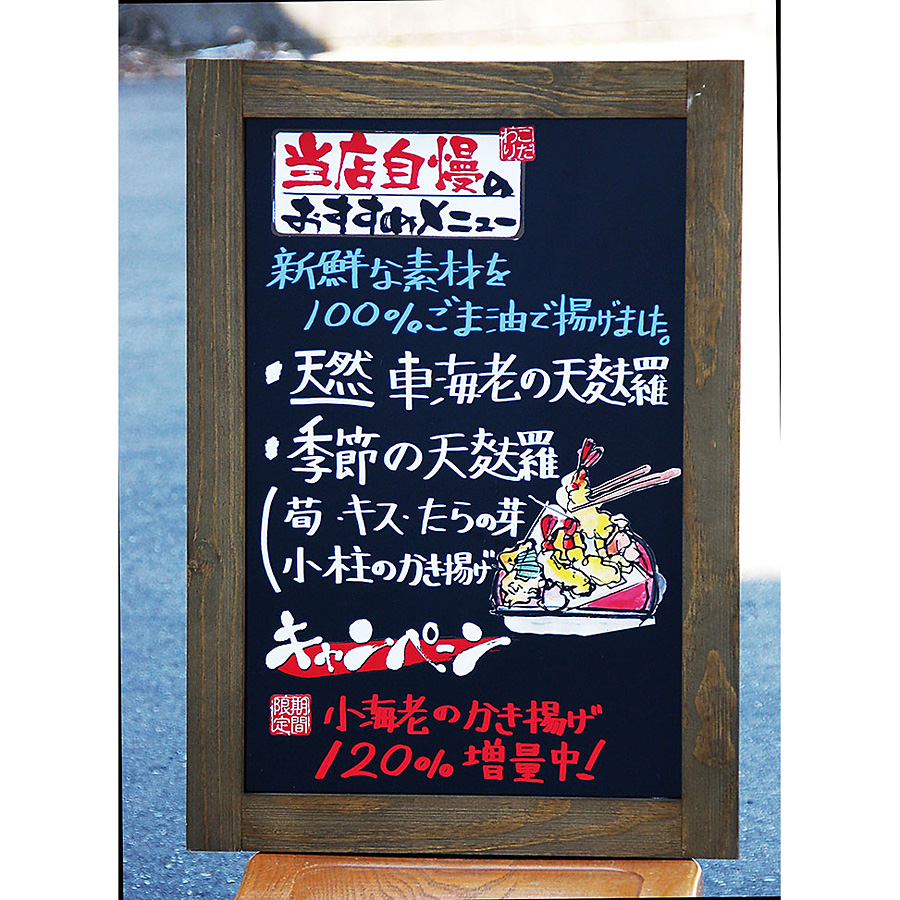 こだわり
当店自慢の
おすすめメニュー
新鮮な素材を
100%ごま油で揚げました。
・天然 車海老の天麩羅
・季節の天麩羅
(筍・キス・たらの芽
小柱のかき揚げ
キャンペーン
期間限定
小海老のかき揚げ
120%増量中!